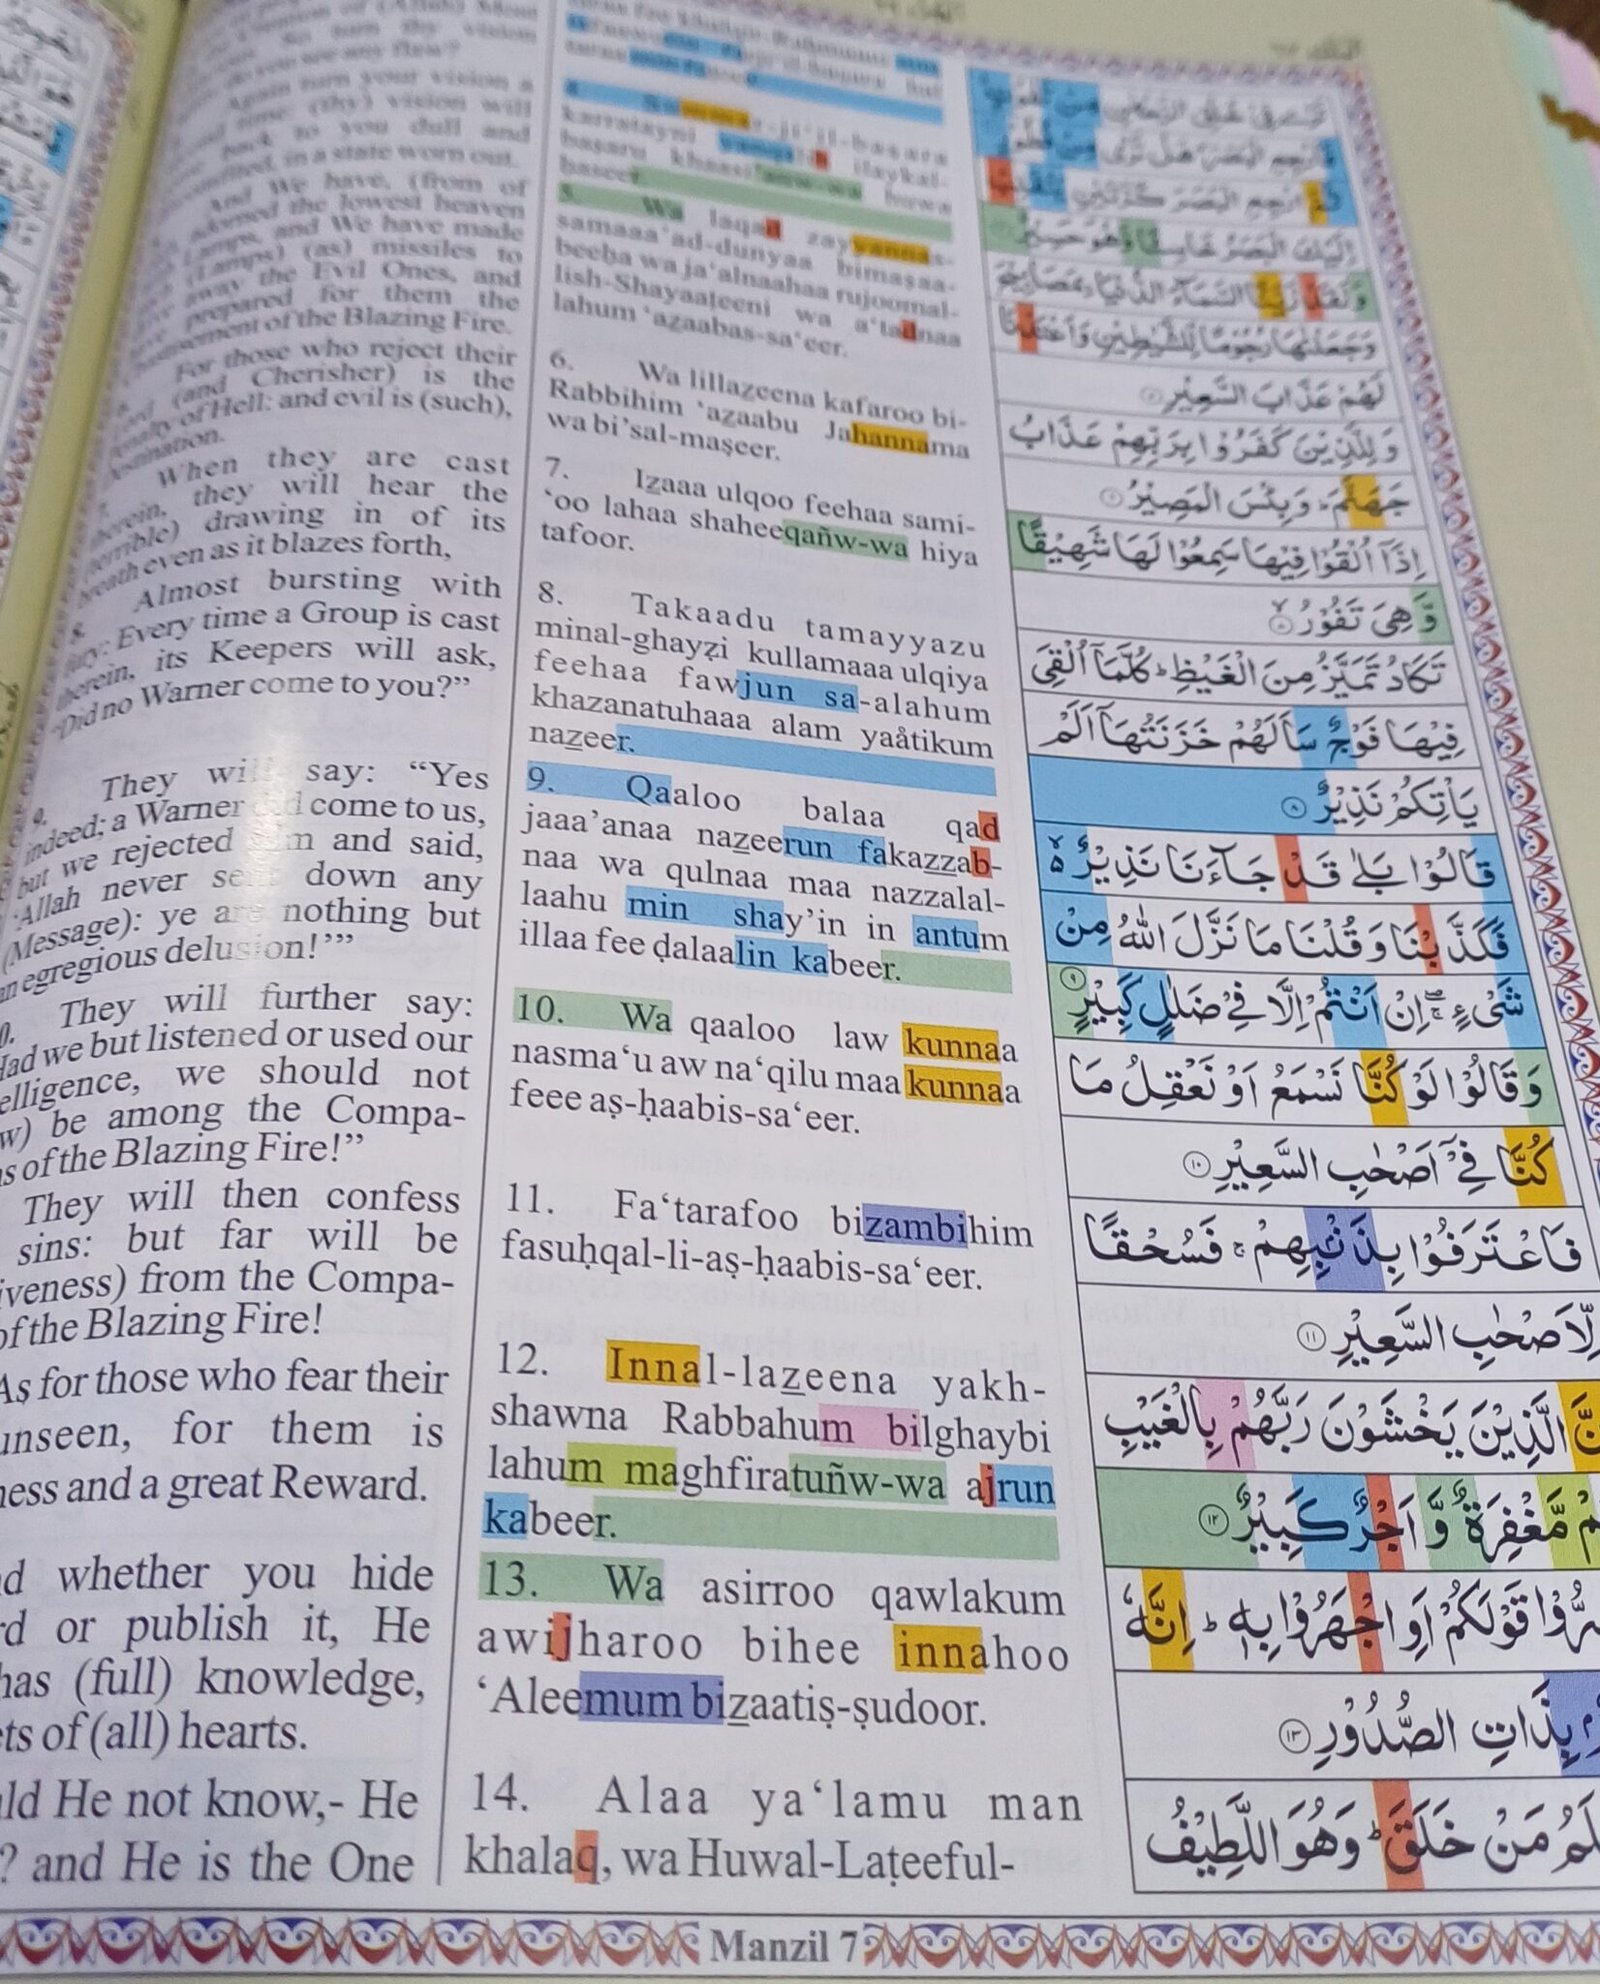 back to you dull and
in a state worn out.
And We have, (from of
adorned the lowest heaven
Lamps, and We have made
(Lamps) (as) missiles to
away the Evil Ones, and
prepared for them the
of the Blazing Fire.
For those who reject their
(and Cherisher) is the
of Hell: and evil is (such),
When they are cast
therein, they will hear the
drawing in of its
breath even as it blazes forth,
8. Almost bursting with
fury: Every time a Group is cast
therein, its Keepers will ask,
“Did no Warner come to you?”
9. They will say: “Yes
indeed; a Warner did come to us,
but we rejected him and said,
‘Allah never sent down any
(Message): ye are nothing but
an egregious delusion!’”
They will further say:
Had we but listened or used our
elligence, we should not
w) be among the Compa-
s of the Blazing Fire!”
They will then confess
sins: but far will be
iveness) from the Compa-
of the Blazing Fire!
As for those who fear their
unseen, for them is
ness and a great Reward.
d whether you hide
rd or publish it, He
has (full) knowledge,
ets of (all) hearts.
ld He not know,- He
? and He is the One
karratayni yanqalib ilaykal-
basaru khaasi'añw-wa huwa
haseer.
5. Wa laqad zayyannas-
samaaa’ad-dunyaa bimaṣaa-
beeḥa wa ja‘alnaahaa rujoomal-
lish-Shayaaṭeeni wa a‘tadnaa
lahum ‘azaabas-sa‘eer.
6. Wa lillazeena kafaroo bi-
Rabbihim ‘azaabu Jahannama
wa bi’sal-maṣeer.
7. Izaaa ulqoo feehaa sami-
‘oo lahaa shaheeqañw-wa hiya
tafoor.
8. Takaadu tamayyazu
minal-ghayẓi kullamaaa ulqiya
feehaa fawjun sa-alahum
khazanatuhaaa alam yaåtikum
nazeer.
9. Qaaloo balaa qad
jaaa’anaa nazeerun fakazzab-
naa wa qulnaa maa nazzalal-
laahu min shay’in in antum
illaa fee ḍalaalin kabeer.
10. Wa qaaloo law kunnaa
nasma‘u aw na‘qilu maa kunnaa
feee aṣ-ḥaabis-sa‘eer.
11. Fa‘tarafoo bizambihim
fasuḥqal-li-aṣ-ḥaabis-sa‘eer.
12. Innal-lazeena yakh-
shawna Rabbahum bilghaybi
lahum maghfiratuñw-wa ajrun
kabeer.
13. Wa asirroo qawlakum
awijharoo bihee innahoo
‘Aleemum bizaatiṣ-ṣudoor.
14. Alaa ya‘lamu man
khalaq, wa Huwal-Laṭeeful-
اِلَيْكَ الْبَصَرُ خَاسِئًا وَّهُوَ حَسِيْرٌ
وَلَقَدْ زَيَّنَّا السَّمَآءَ الدُّنْيَا بِمَصَابِيْحَ
وَجَعَلْنٰهَا رُجُوْمًا لِّلشَّيٰطِيْنِ وَاَعْتَدْنَا
لَهُمْ عَذَابَ السَّعِيْرِ ۝۵
وَلِلَّذِيْنَ كَفَرُوْا بِرَبِّهِمْ عَذَابُ
جَهَنَّمَ ؕ وَبِئْسَ الْمَصِيْرُ ۝۶
اِذَاۤ اُلْقُوْا فِيْهَا سَمِعُوْا لَهَا شَهِيْقًا
وَّهِيَ تَفُوْرُ ۝۷
تَكَادُ تَمَيَّزُ مِنَ الْغَيْظِ ؕ كُلَّمَاۤ اُلْقِيَ
فِيْهَا فَوْجٌ سَاَلَهُمْ خَزَنَتُهَاۤ اَلَمْ
يَاْتِكُمْ نَذِيْرٌ ۝۸
قَالُوْا بَلٰى قَدْ جَآءَنَا نَذِيْرٌ ۙ۬
فَكَذَّبْنَا وَقُلْنَا مَا نَزَّلَ اللّٰهُ مِنْ
شَيْءٍ ۚۖ اِنْ اَنْتُمْ اِلَّا فِيْ ضَلٰلٍ كَبِيْرٍ ۝۹
وَقَالُوْا لَوْ كُنَّا نَسْمَعُ اَوْ نَعْقِلُ مَا
كُنَّا فِيْۤ اَصْحٰبِ السَّعِيْرِ ۝۱۰
فَاعْتَرَفُوْا بِذَنْۢبِهِمْ ۚ فَسُحْقًا
لِّاَصْحٰبِ السَّعِيْرِ ۝۱۱
نَّ الَّذِيْنَ يَخْشَوْنَ رَبَّهُمْ بِالْغَيْبِ
مْ مَّغْفِرَةٌ وَّاَجْرٌ كَبِيْرٌ ۝۱۲
رُّوْا قَوْلَكُمْ اَوِ اجْهَرُوْا بِهٖ ؕ اِنَّهٗ
بِذَاتِ الصُّدُوْرِ ۝۱۳
لَمُ مَنْ خَلَقَ ؕ وَهُوَ اللَّطِيْفُ
Manzil 7